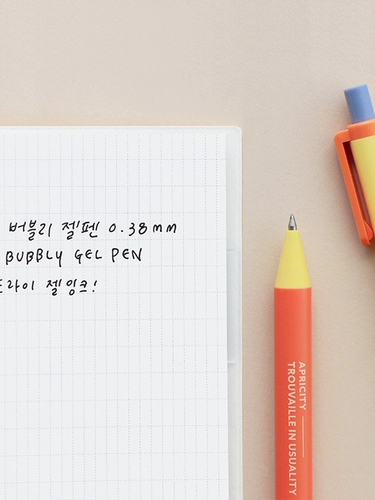 버블리 젤펜 0.38mm
BUBBLY GEL PEN
드라이 젤잉크!
APRICITY
TROUVAILLE IN USUALITY